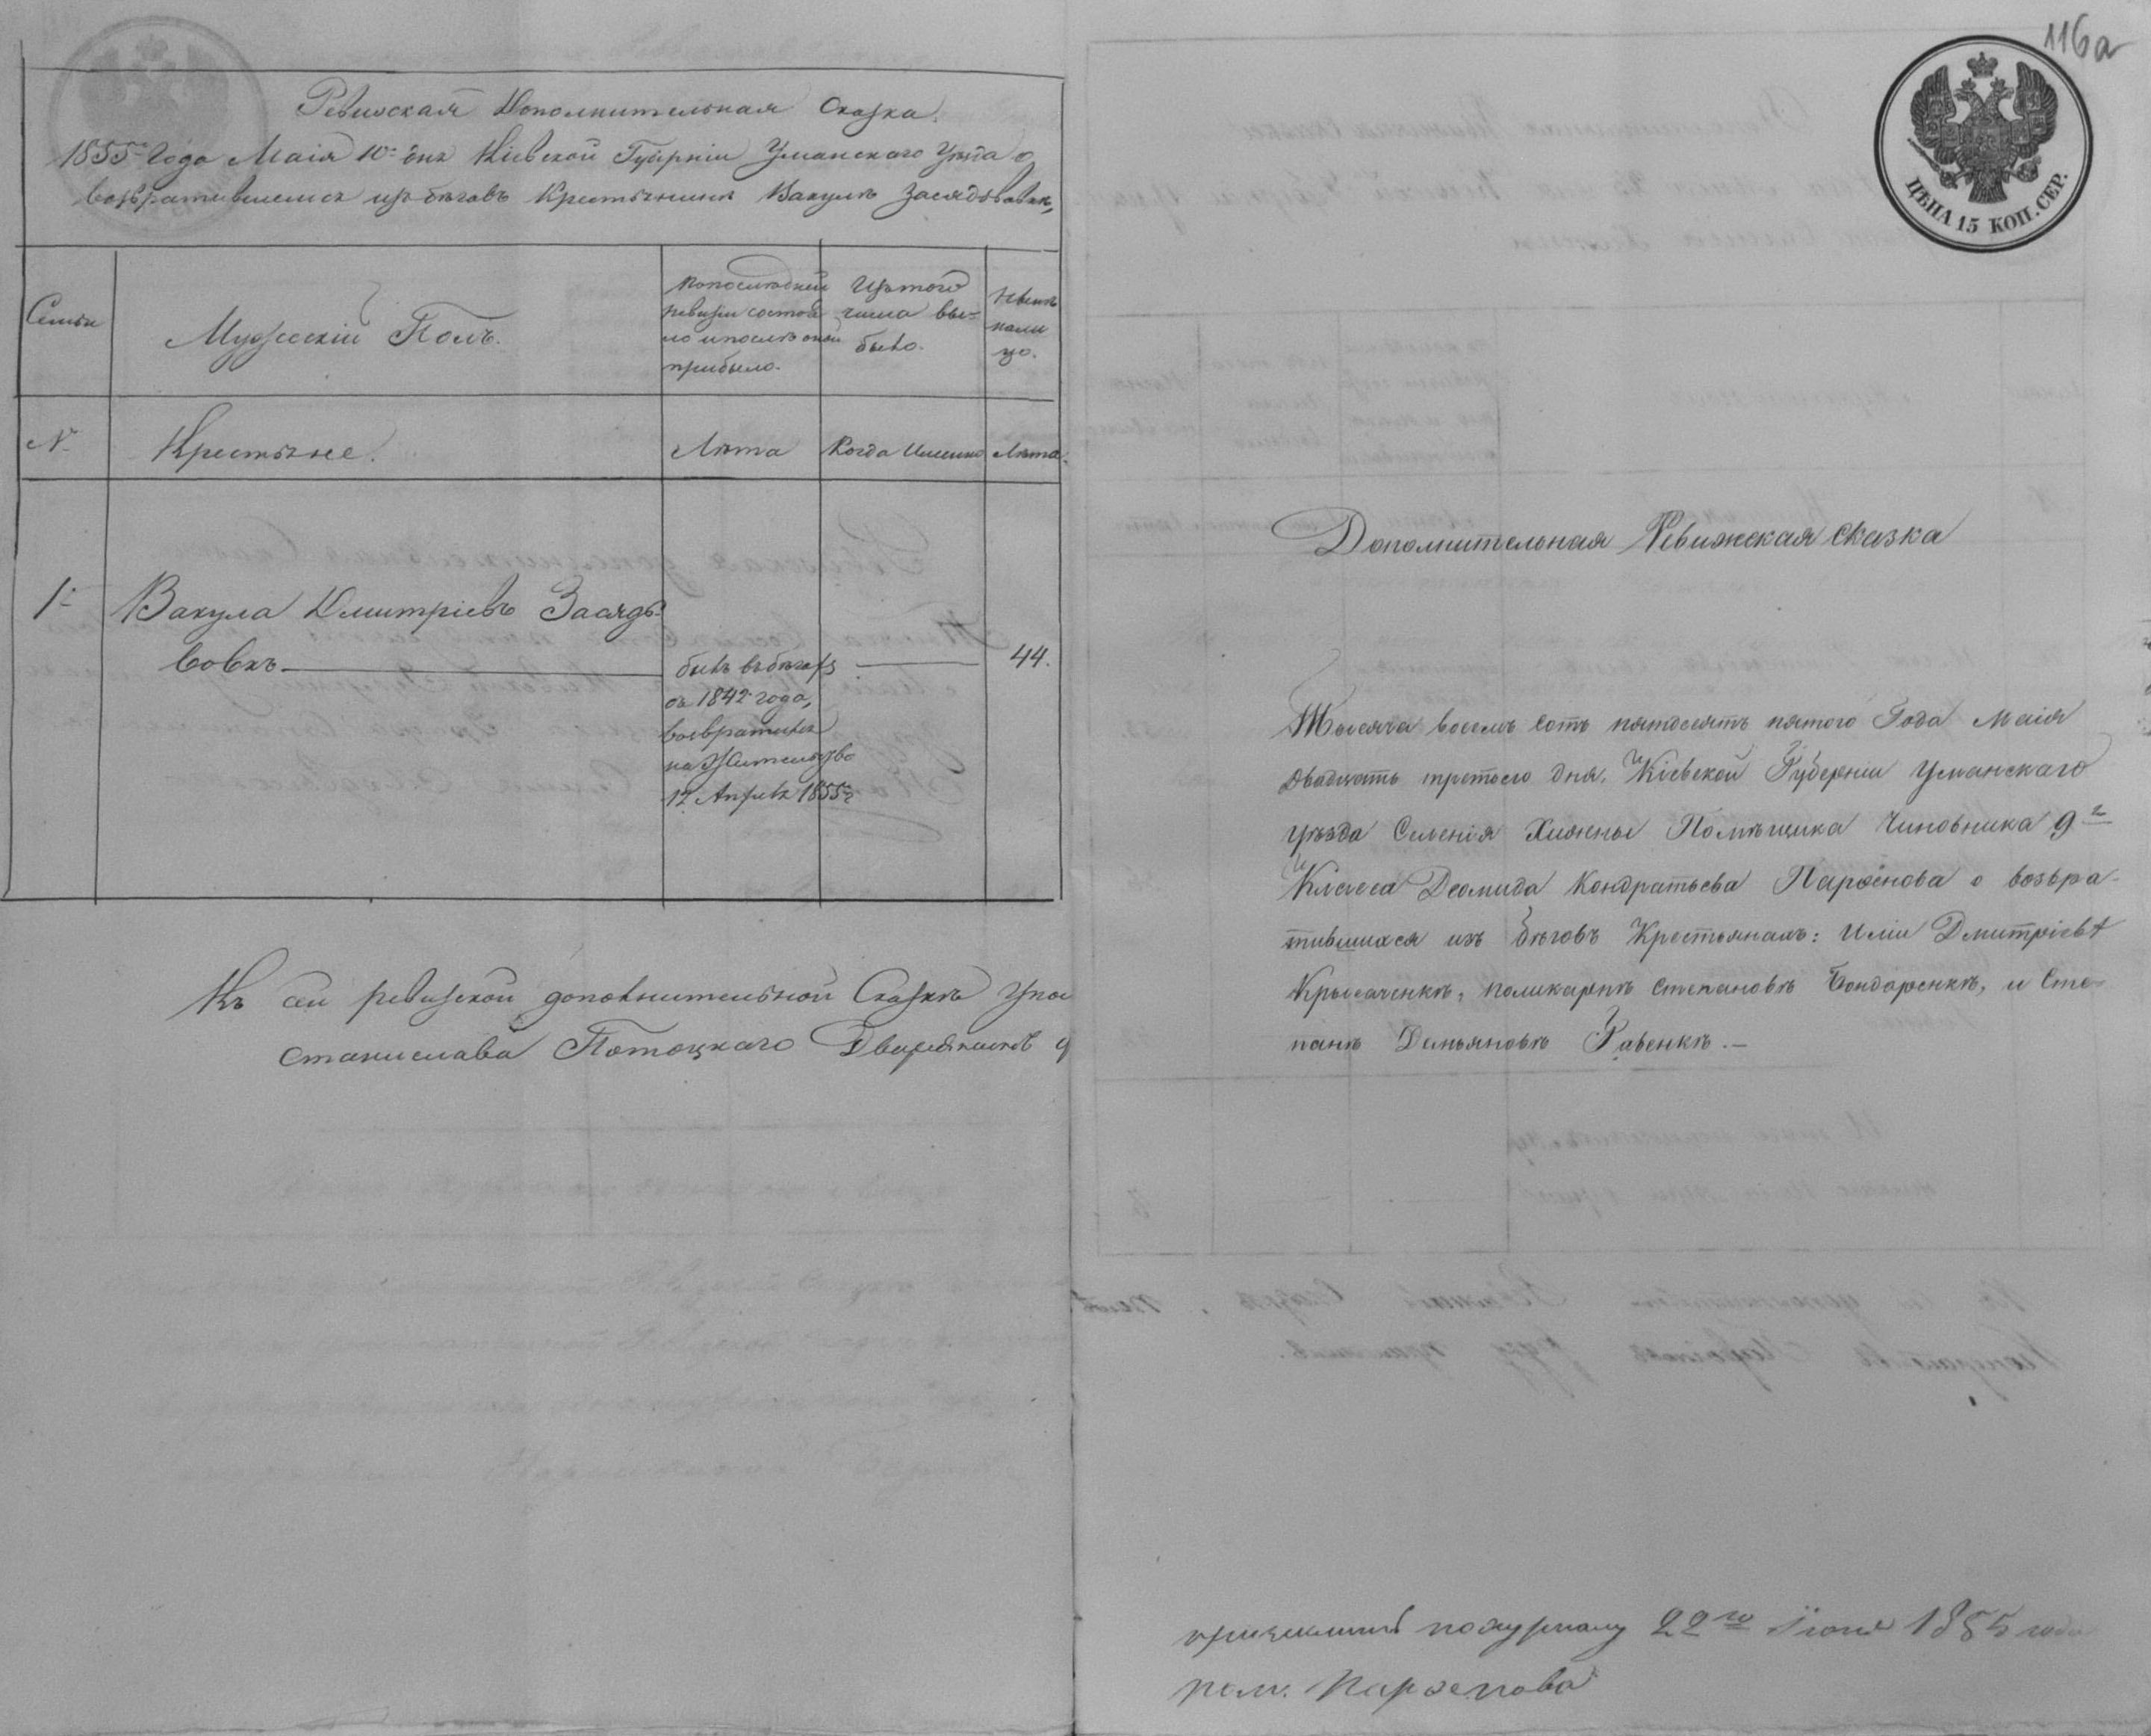 Ревизская Дополнительная Сказка.
1855го Года Маія 10го дня Кіевской Губерніи Уманскаго Уѣзда о
возвратившемся изъ бѣговъ Крестьянинѣ Вакулѣ Засядьвовкѣ,
Семьи
Мужескій Полъ.
по последней ревизіи состояло и послѣ оной прибыло.
Изъ того числа выбыло.
Нынѣ на лицо.
№
Крестьяне.
Лѣта
Когда Именно
Лѣта.
1й
Вакула Дмитріевъ Засядь-
вовкъ
былъ въ бѣгахъ
съ 1842 года,
возвратился
на жительство
12 Апрѣля 1855 г
44.
Къ сей ревизской дополнительной Сказкѣ
Станислава Потоцкаго Дворянинъ
116а
ЦѢНА 15 КОП. СЕР.
Дополнительная Ревижская Сказка
Тысяча восемь сотъ пятдесятъ пятого Года Маія
двадцать третьего дня, Кіевской Губерніи Уманскаго
уѣзда Селенія Хижны Помѣщика Чиновника 9го
Класса Деомида Кондратьева Парѳенова о возвра-
тившихся изъ бѣговъ Крестьянахъ: Ильи Дмитріевѣ
Крысаченкѣ, поликарпѣ Степановѣ Бондаренкѣ, и Сте-
панѣ Демьяновѣ Равенкѣ.—
по журналу 22го Іюня 1855 года
пом. Парѳенова